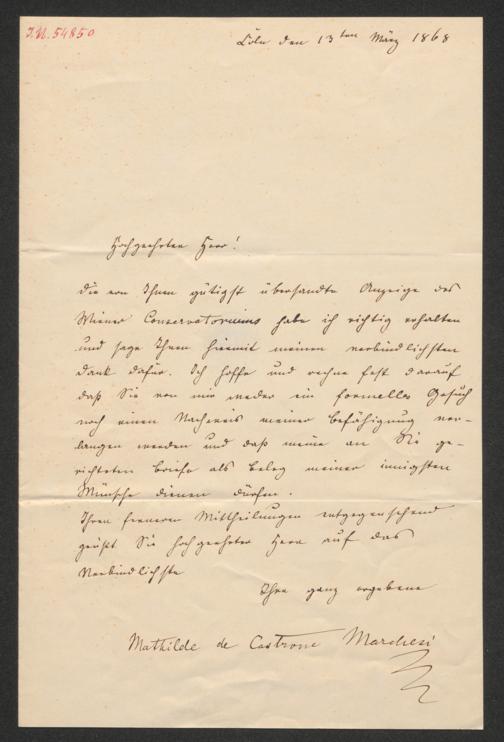 I.N. 54850
Cöln den 13ten März 1868
Hochgeehrter Herr!
Die von Ihnen gütigst übersandte Anzeige des
Wiener Conservatoriums habe ich richtig erhalten
und sage Ihnen hiemit meinen verbindlichsten
Dank dafür. Ich hoffe und rechne fest darauf
daß Sie von mir weder ein formelles Gesuch
noch einen Nachweis meiner Befähigung ver-
langen werden und daß meine an Sie ge-
richteten Briefe als Beleg meiner innigsten
Wünsche dienen dürfen.
Ihren ferneren Mittheilungen entgegensehend
grüßt Sie hochgeehrter Herr auf das
Verbindlichste
Ihre ganz ergebene
Mathilde de Castrone Marchesi